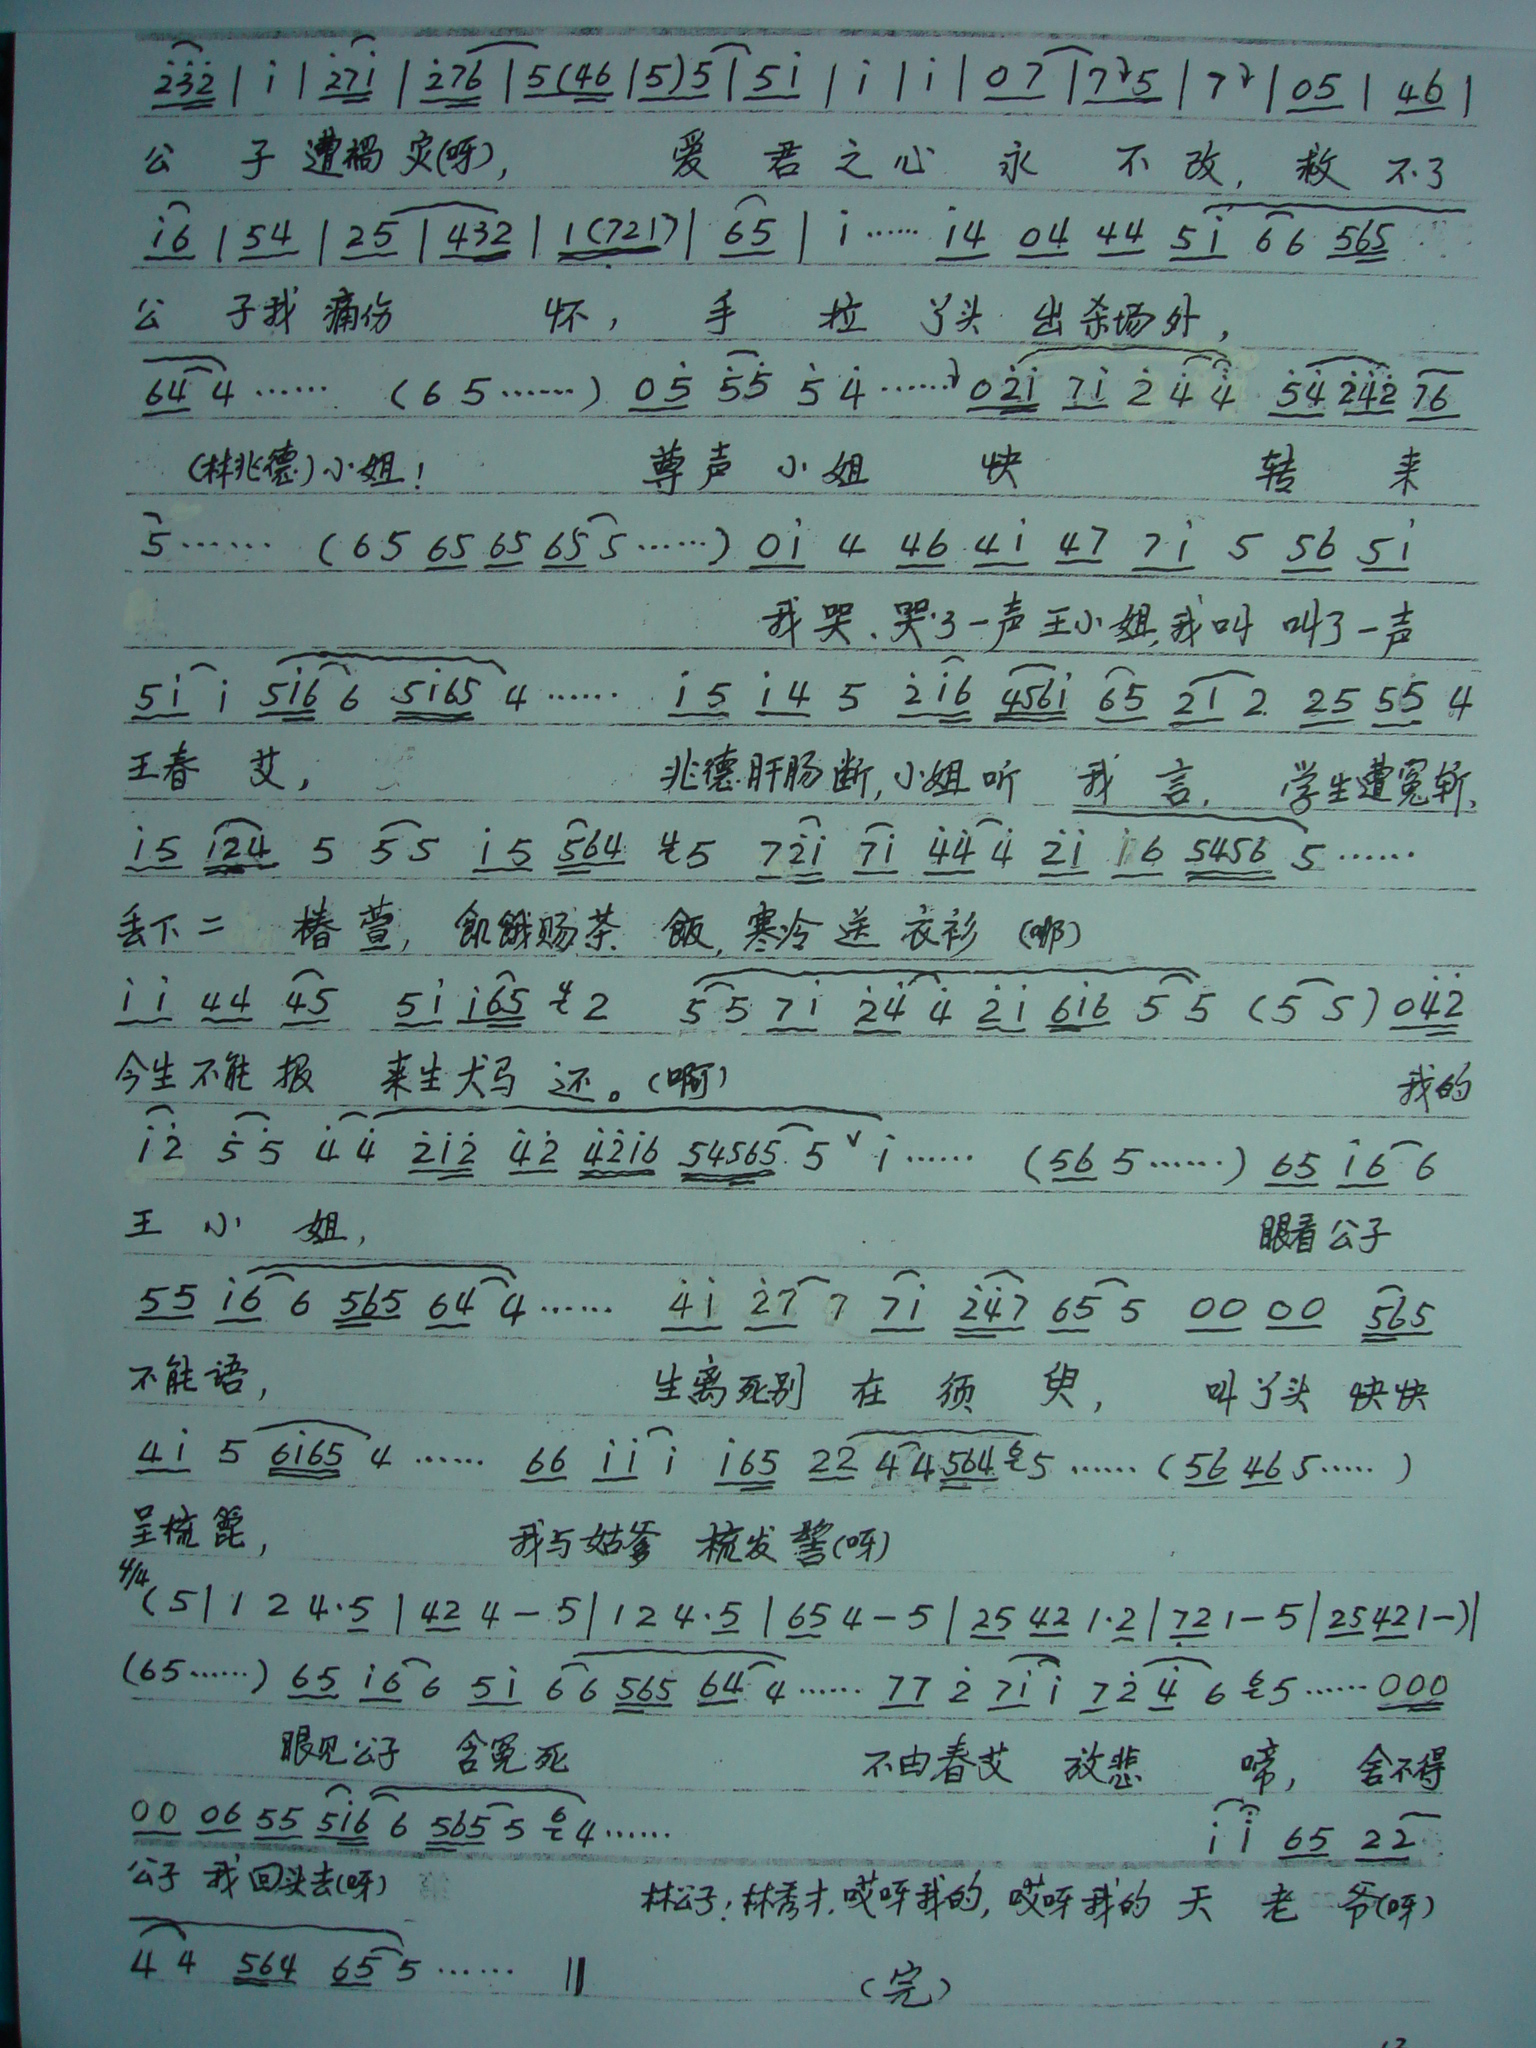 2̇3̇2̇ | i | 2̇7i | 2̇76 | 5(46 | 5)5 | 5i | i | i | 07 | 7 5 | 7 | 05 | 46 |
公 子遭祸灾(呀), 爱君之心永不改, 救不了
i6 | 54 | 25 | 432 | 1(721) | 65 | i …… i4 04 44 5i 66 565
公 子我痛伤 怀, 手 拉 丫头 出杀场外,
64 4 …… (65……) 05̇ 5̇5̇ 5̇ 4̇ …… 02̇i 7i 2̇ 4̇ 4̇ 5̇4̇ 2̇4̇2̇ 76
(林兆德)小姐! 尊声小姐 快 转 来
5 …… (65 65 65 65 5 ……) 0i 4 46 4i 47 7i 5 56 5i
我哭、哭了一声王小姐,我叫 叫了一声
5i i 5i6 6 5i65 4 …… i5 i4 5 2̇i6 456i 65 21 2 25 55 4
王春 艾, 兆德肝肠断,小姐听 我 言, 学生遭冤斩,
i5 i2̇4̇ 5 55 i5 564 5 72̇i 7i 4̇4̇ 4̇ 2̇i i6 5456 5 ……
丢下二 椿萱, 飢餓赐茶 飯, 寒冷送衣衫 (哪)
i i 44 45 5i i65 2 5̇5 7i 2̇4̇ 4̇ 2̇i 6i6 5 5 (5 5) 04̇2̇
今生不能报 来生犬马 还。(啊) 我的
i2̇ 5̇5̇ 4̇4̇ 2̇i2̇ 4̇2̇ 4̇2̇i6 54565 5 ˅ i …… (56 5 ……) 65 i6 6
王 小 姐, 眼看公子
55 i6 6 565 64 4 …… 4̇i 2̇7 7 7i 2̇4̇7 65 5 00 00 565
不能语, 生离死别 在 须 臾, 叫丫头 快快
4i 5 6i65 4 …… 66 ii i i65 22 44 564 5 …… (56 46 5 ……)
呈梳篦, 我与姑爹 梳发髻(呀)
4/4 (5 | 1 2 4·5 | 42 4 – 5 | 1 2 4·5 | 65 4 – 5 | 25 42 1·2 | 72 1 – 5 | 25 42 1 –) |
(65……) 65 i6 6 5i 66 565 64 4 …… 77 2̇ 7i i 72̇ 4̇ 6 5 …… 000
眼见公子 含冤死 不由春艾 放悲 啼, 舍不得
00 06 55 5i6 6 565 5 4 …… i i 65 22
公子 我回头去(呀) 林公子! 林秀才, 哎呀我的, 哎呀我的 天 老 爷(呀)
4 4 564 65 5 …… ‖ (完)